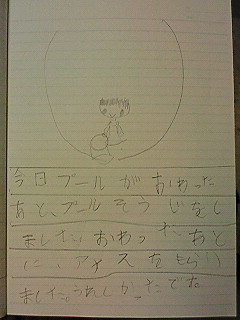 今日プールがおわった
あと、プールそうじをし
ました。おわったあと
に、アイスをもらい
ました。うれしかったです